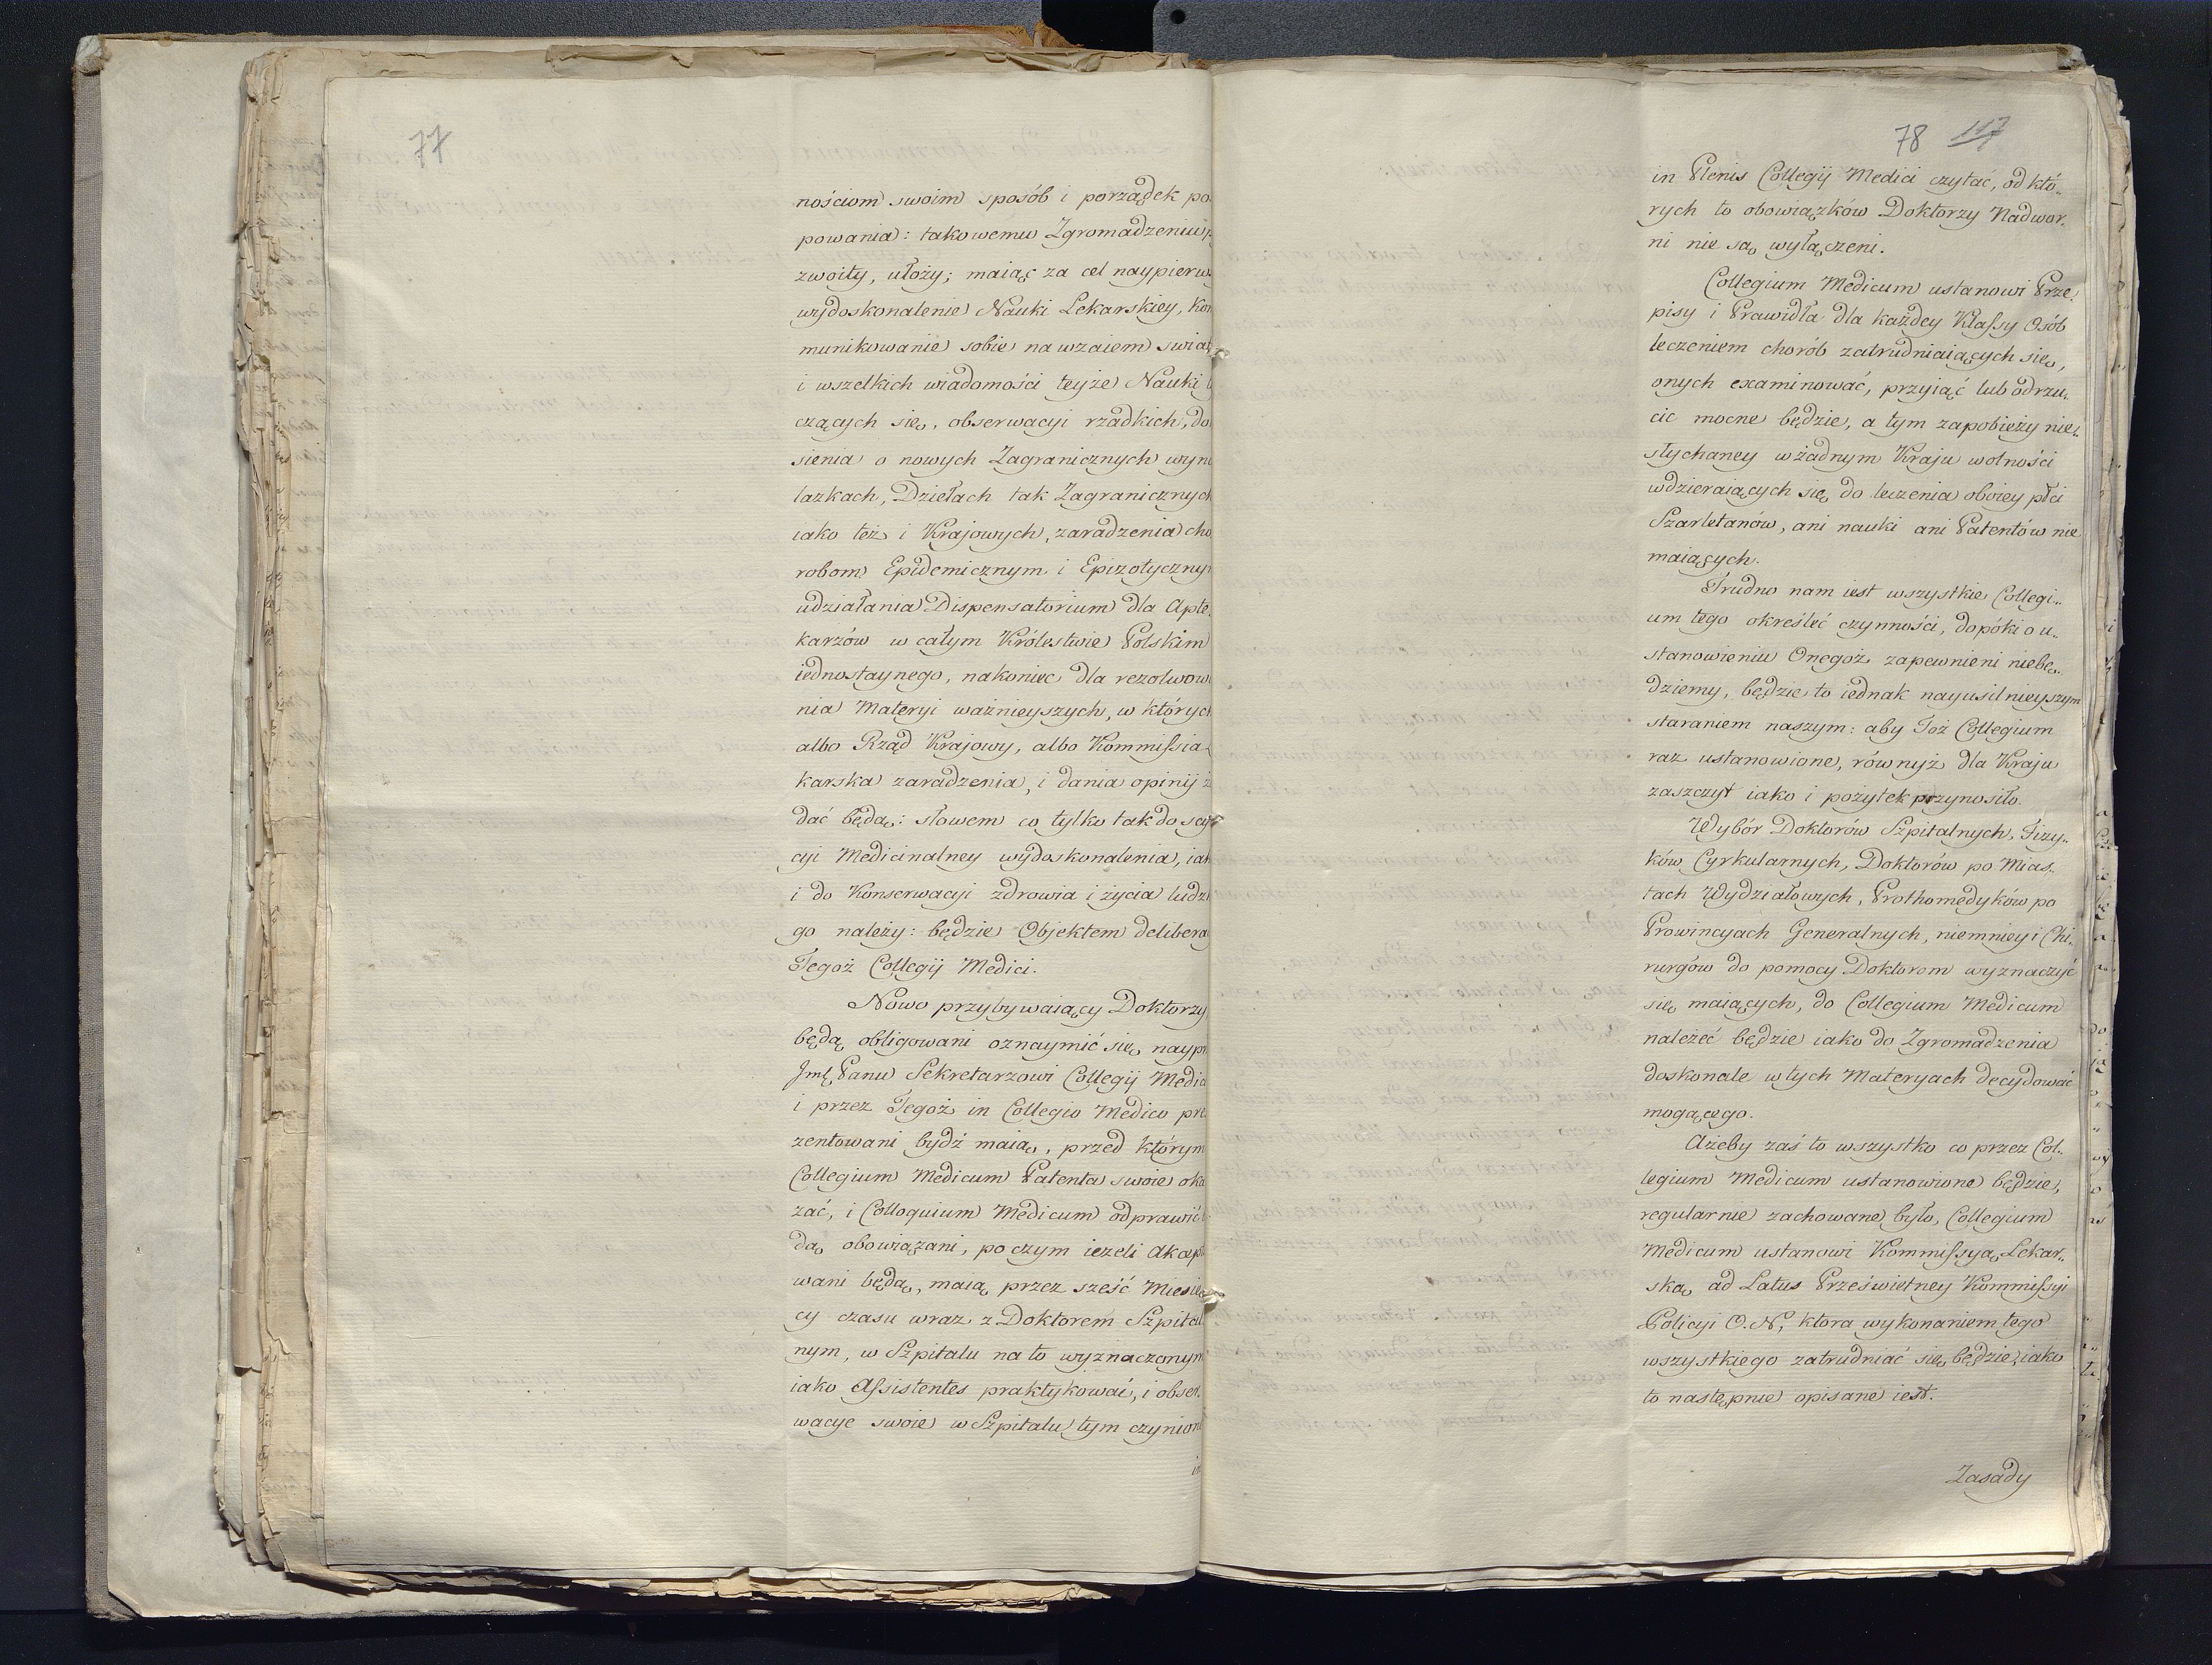 77
nościom swoim sposób i porządek po
powania: takowemu Zgromadzeniu
zwoity, ułoży; maiąc za cel naypierw
wydoskonalenie Nauki Lekarskiey, Kom
munikowanie sobie nawzaiem swiat
i wszelkich wiadomości teyże Nauki
czących się, obserwacyi rzadkich, do
sienia o nowych Zagranicznych wyna
lazkach, Dziełach tak Zagranicznych
iako też i Krajowych, zaradzenia cho
robom Epidemicznym i Epizotyczny
udziałania Dispensatorium dla Apte
karzów w całym Królestwie Polskim
iednostaynego, nakoniec dla rezolwowa
nia Materyi ważnieyszych, w których
albo Rząd Krajowy, albo Kommissia
karska zaradzenia, i dania opinij ż
dać będą: słowem co tylko tak do scy
cyi Medicinalney wydoskonalenia, iak
i do Konserwacyi zdrowia i życia ludz
go należy: będzie Objektem delibera
Tegoż Collegij Medici.
Nowo przybywaiący Doktorzy
będą obligowani oznaymić się naypr
Jmć Panu Sekretarzowi Collegij Medic
i przez Tegoż in Collegio Medico pre
zentowani bydź maią, przed którym
Collegium Medicum Patenta swoie oka
zać, i Colloquium Medicum odprawić
dą obowiązani, po czym ieżeli Akcep
wani będą, maią przez sześć Miesię
cy czasu wraz z Doktorem Szpital
nym, w Szpitalu na to wyznaczonym
iako Assistentes praktykować, i obser
wacye swoie w Szpitalu tym czynion
in
78 117
in Plenis Collegij Medici czytać, od któ„
rych to obowiązków Doktorzy Nadwor„
ni nie są wyłączeni.
Collegium Medicum ustanowi Prze„
pisy i Prawidła dla każdey Klassy Osób
leczeniem chorób zatrudniaiących się,
onych examinować, przyiąć lub odrzu„
cic mocne będzie, a tym zapobieży nie„
słychaney w żadnym Kraju wolności
wdzieraiących się do leczenia oboiey płci
Szarletanów, ani nauki ani Patentów nie
maiących.
Trudno nam iest wszystkie Collegi„
um tego określć czynności, dopóki o u„
stanowieniu Onegoż zapewnieni niebę„
dziemy, będzie to iednak nayusilnieyszym
staraniem naszym: aby Toż Collegium
raz ustanowione, równyż dla Kraju
zaszczyt iako i pożytek przynosiło.
Wybór Doktorów Szpitalnych, Fizy„
ków Cyrkularnych, Doktorów po Mias„
tach Wydziałowych, Prothomedyków po
Prowincyach Generalnych, niemniey i Chi„
rurgów do pomocy Doktorom wyznaczyć
się maiących, do Collegium Medicum
należeć będzie iako do Zgromadzenia
doskonale w tych Materyach decydować
mogącego.
Ażeby zaś to wszystko co przez Col„
legium Medicum ustanowione będzie,
regularnie zachowane było, Collegium
Medicum ustanowi Kommissyą Lekar„
ską ad Latus Prześwietney Kommissyi
Policyi O. N, ktora wykonaniem tego
wszystkiego zatrudniać się będzie, iako
to następnie opisane iest.
Zasady